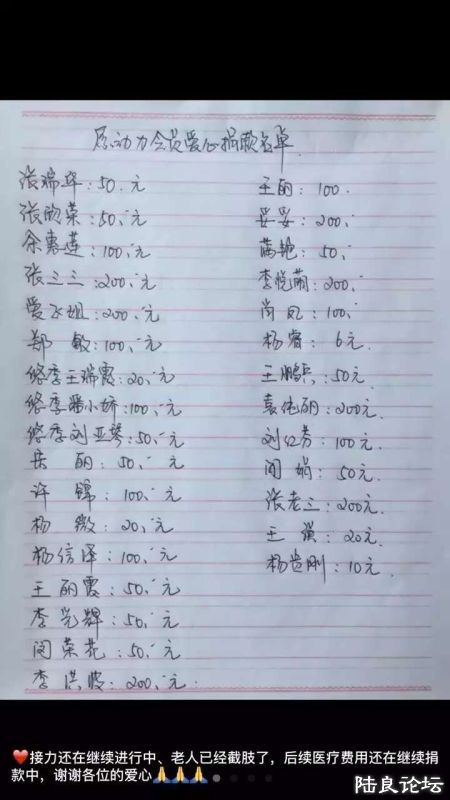 原动力会员爱心捐款名单
张瑞华:50.元
张的荣:50.元
余惠莲:100.元
张三三:200.元
爱飞姐:200.元
郑 敏:100.元
悠季王瑞霞:20.元
悠季潘小娇:100.元
悠季刘亚琴:50.元
岳 丽:50.元
许 锦:100.元
杨 微:20.元
杨信泽:100.元
王丽霞:50.元
李光辉:50.元
闵荣花:50.元
李洪波:200.元
王丽:100.
妥妥:200.
满艳:50.
李悦萌:200.
尚凤:100.
杨睿:6元.
王鹏兵:50元
袁伟丽:200元.
刘红芬:100元.
闵娟:50元.
张老三:200元.
王 强:20元.
杨贵刚:10元.
❤️接力还在继续进行中、老人已经截肢了，后续医疗费用还在继续捐
款中，谢谢各位的爱心🙏🙏🙏
陆良论坛